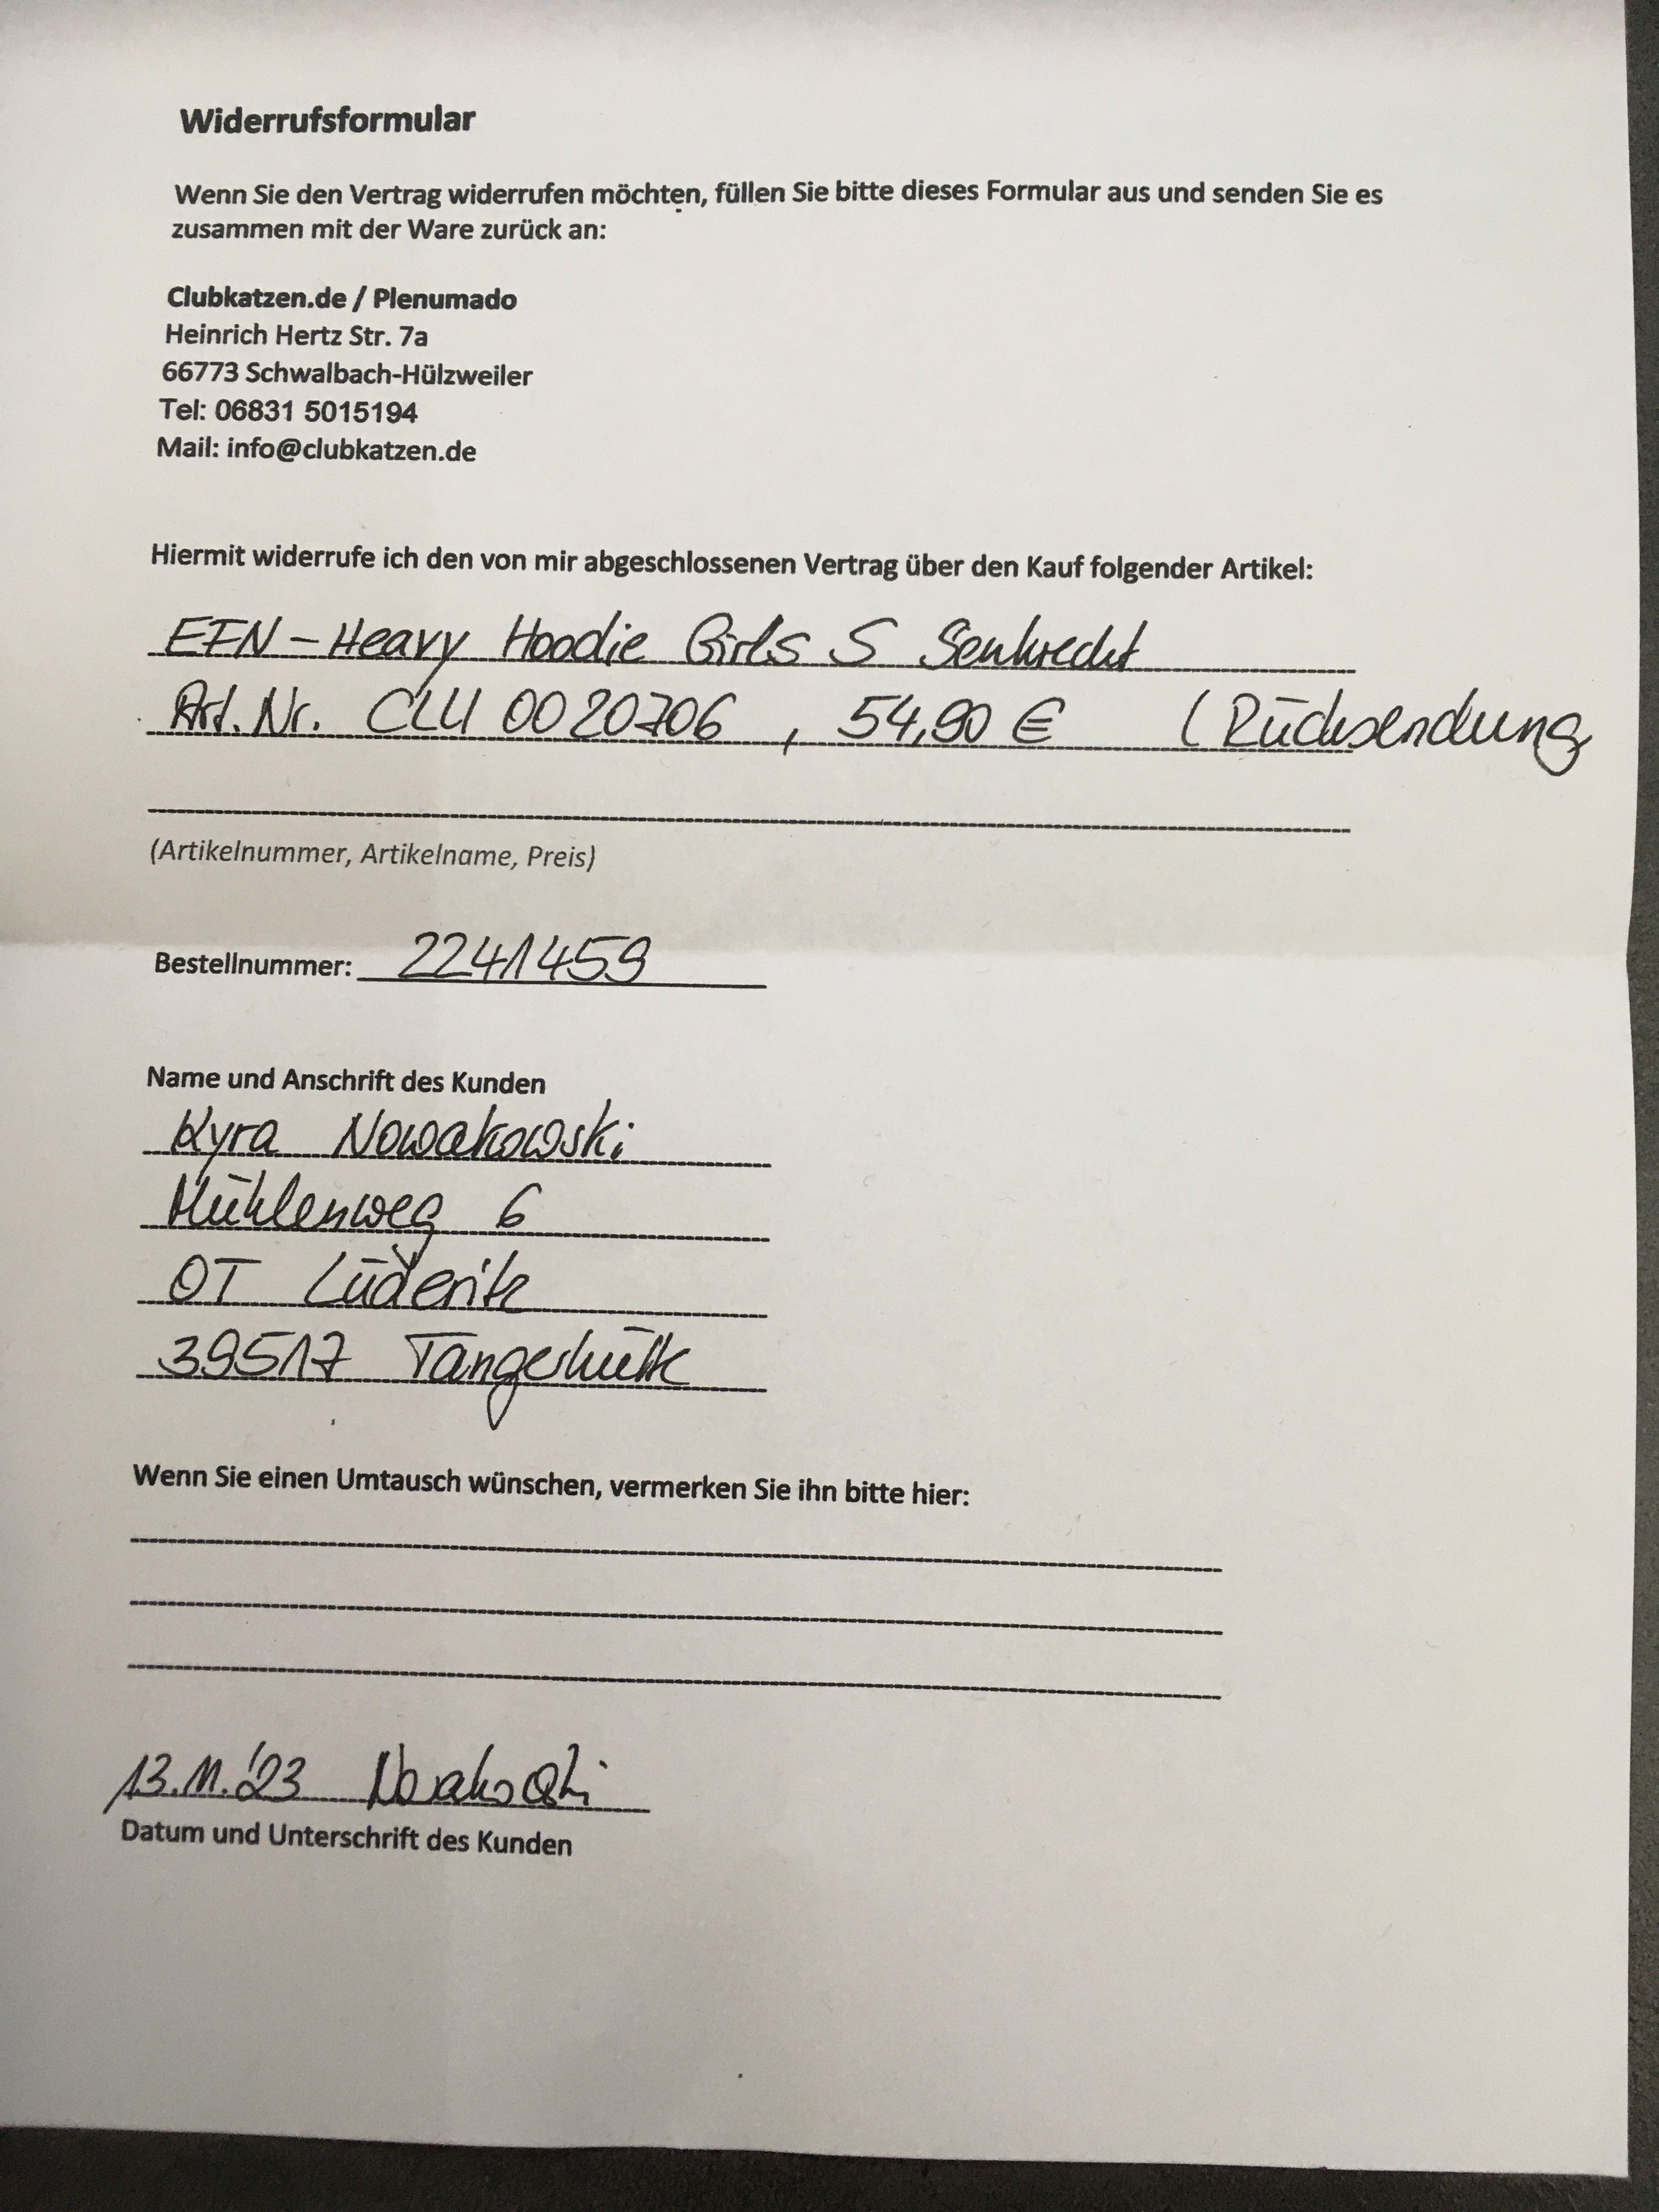 Widerrufsformular
Wenn Sie den Vertrag widerrufen möchten, füllen Sie bitte dieses Formular aus und senden Sie es
zusammen mit der Ware zurück an:
Clubkatzen.de / Plenumado
Heinrich Hertz Str. 7a
66773 Schwalbach-Hülzweiler
Tel: 06831 5015194
Mail: info@clubkatzen.de
Hiermit widerrufe ich den von mir abgeschlossenen Vertrag über den Kauf folgender Artikel:
EFN-Heavy Hoodie Girls S Senkrecht
Art. Nr. CLU 0020706 , 54,90 € (Rücksendung
(Artikelnummer, Artikelname, Preis)
Bestellnummer: 2241459
Name und Anschrift des Kunden
Kyra Nowakowski
Mühlenweg 6
OT Lüderitz
39517 Tangerhütte
Wenn Sie einen Umtausch wünschen, vermerken Sie ihn bitte hier:
13.11.'23 Nowakowski
Datum und Unterschrift des Kunden